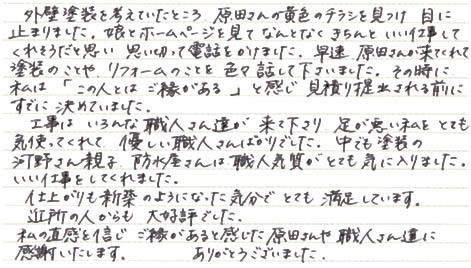 外壁塗装を考えていたところ 原田さんの黄色のチラシを見つけ 目に
止まりました。娘とホームページを見て なんとなく きちんと いい仕事して
くれそうだと思い 思い切って電話をかけました。早速 原田さんが来てくれて
塗装のことや リフォームのことを 色々話して下さいました。その時に
私は 「この人とは ご縁がある」と感じ 見積り提出される前に
すでに 決めていました。
工事は いろんな職人さん達が 来て下さり 足が悪い私を とても
気使ってくれて 優しい職人さんばかりでした。中でも塗装の
河野さん親子 防水屋さんは 職人気質がとても気に入りました。
いい仕事をしてくれました。
仕上がりも新築のようになった気分で とても 満足しています。
近所の人からも 大好評でした。
私の直感を信じ ご縁があると感じた 原田さんや 職人さん達に
感謝いたします。 ありがとうございました。